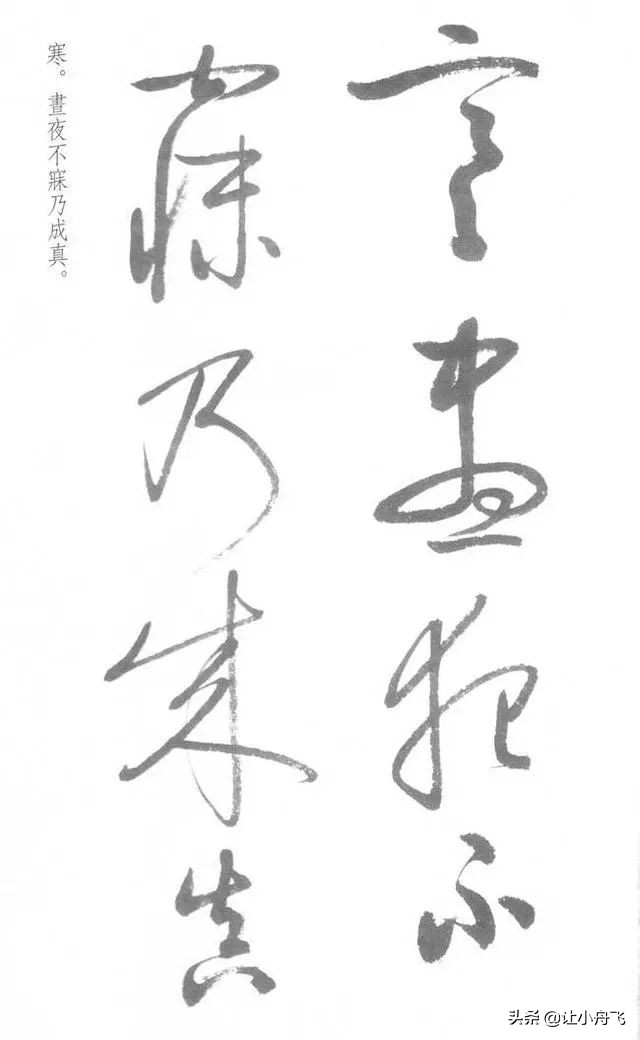 寒晝夜不
寐乃成真
寒。晝夜不寐乃成真。
头条 @让小舟飞